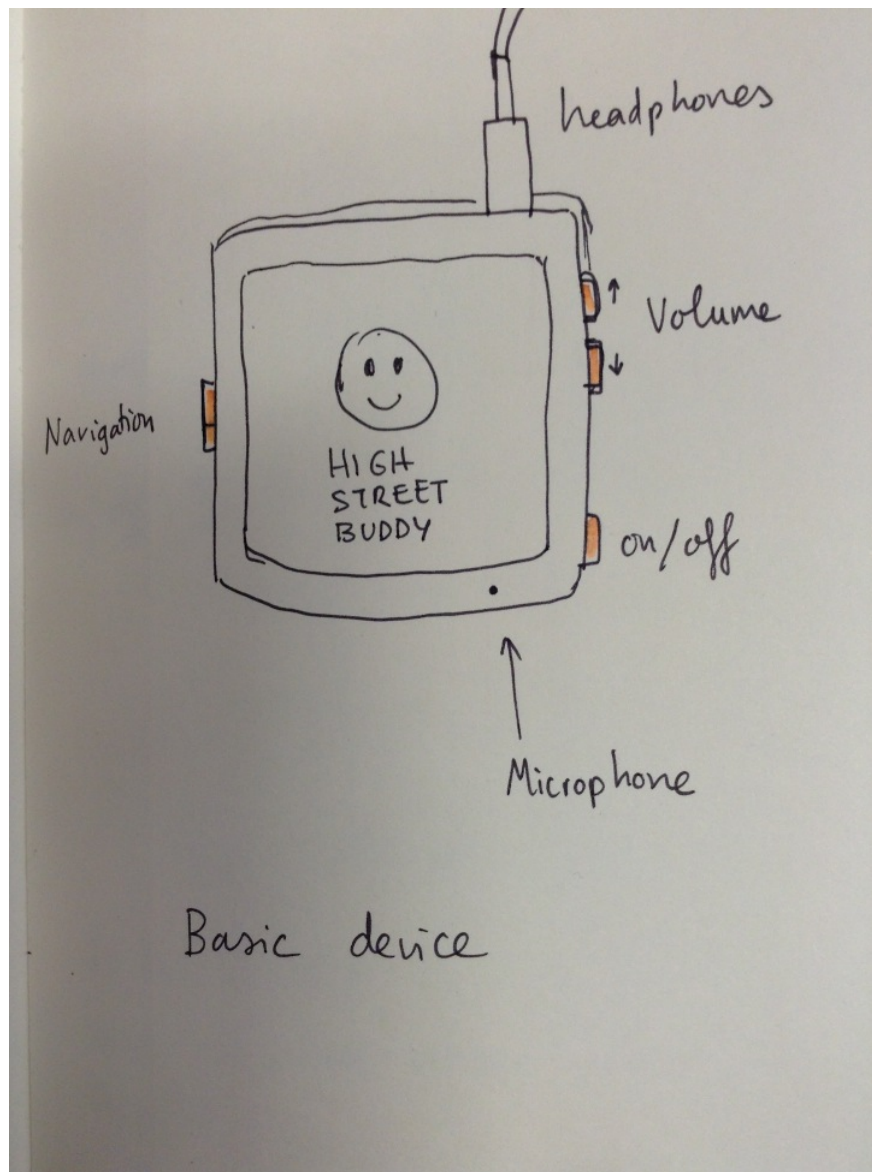 headphones
↑
Volume
↓
Navigation
HIGH
STREET
BUDDY
on/off
Microphone
Basic device